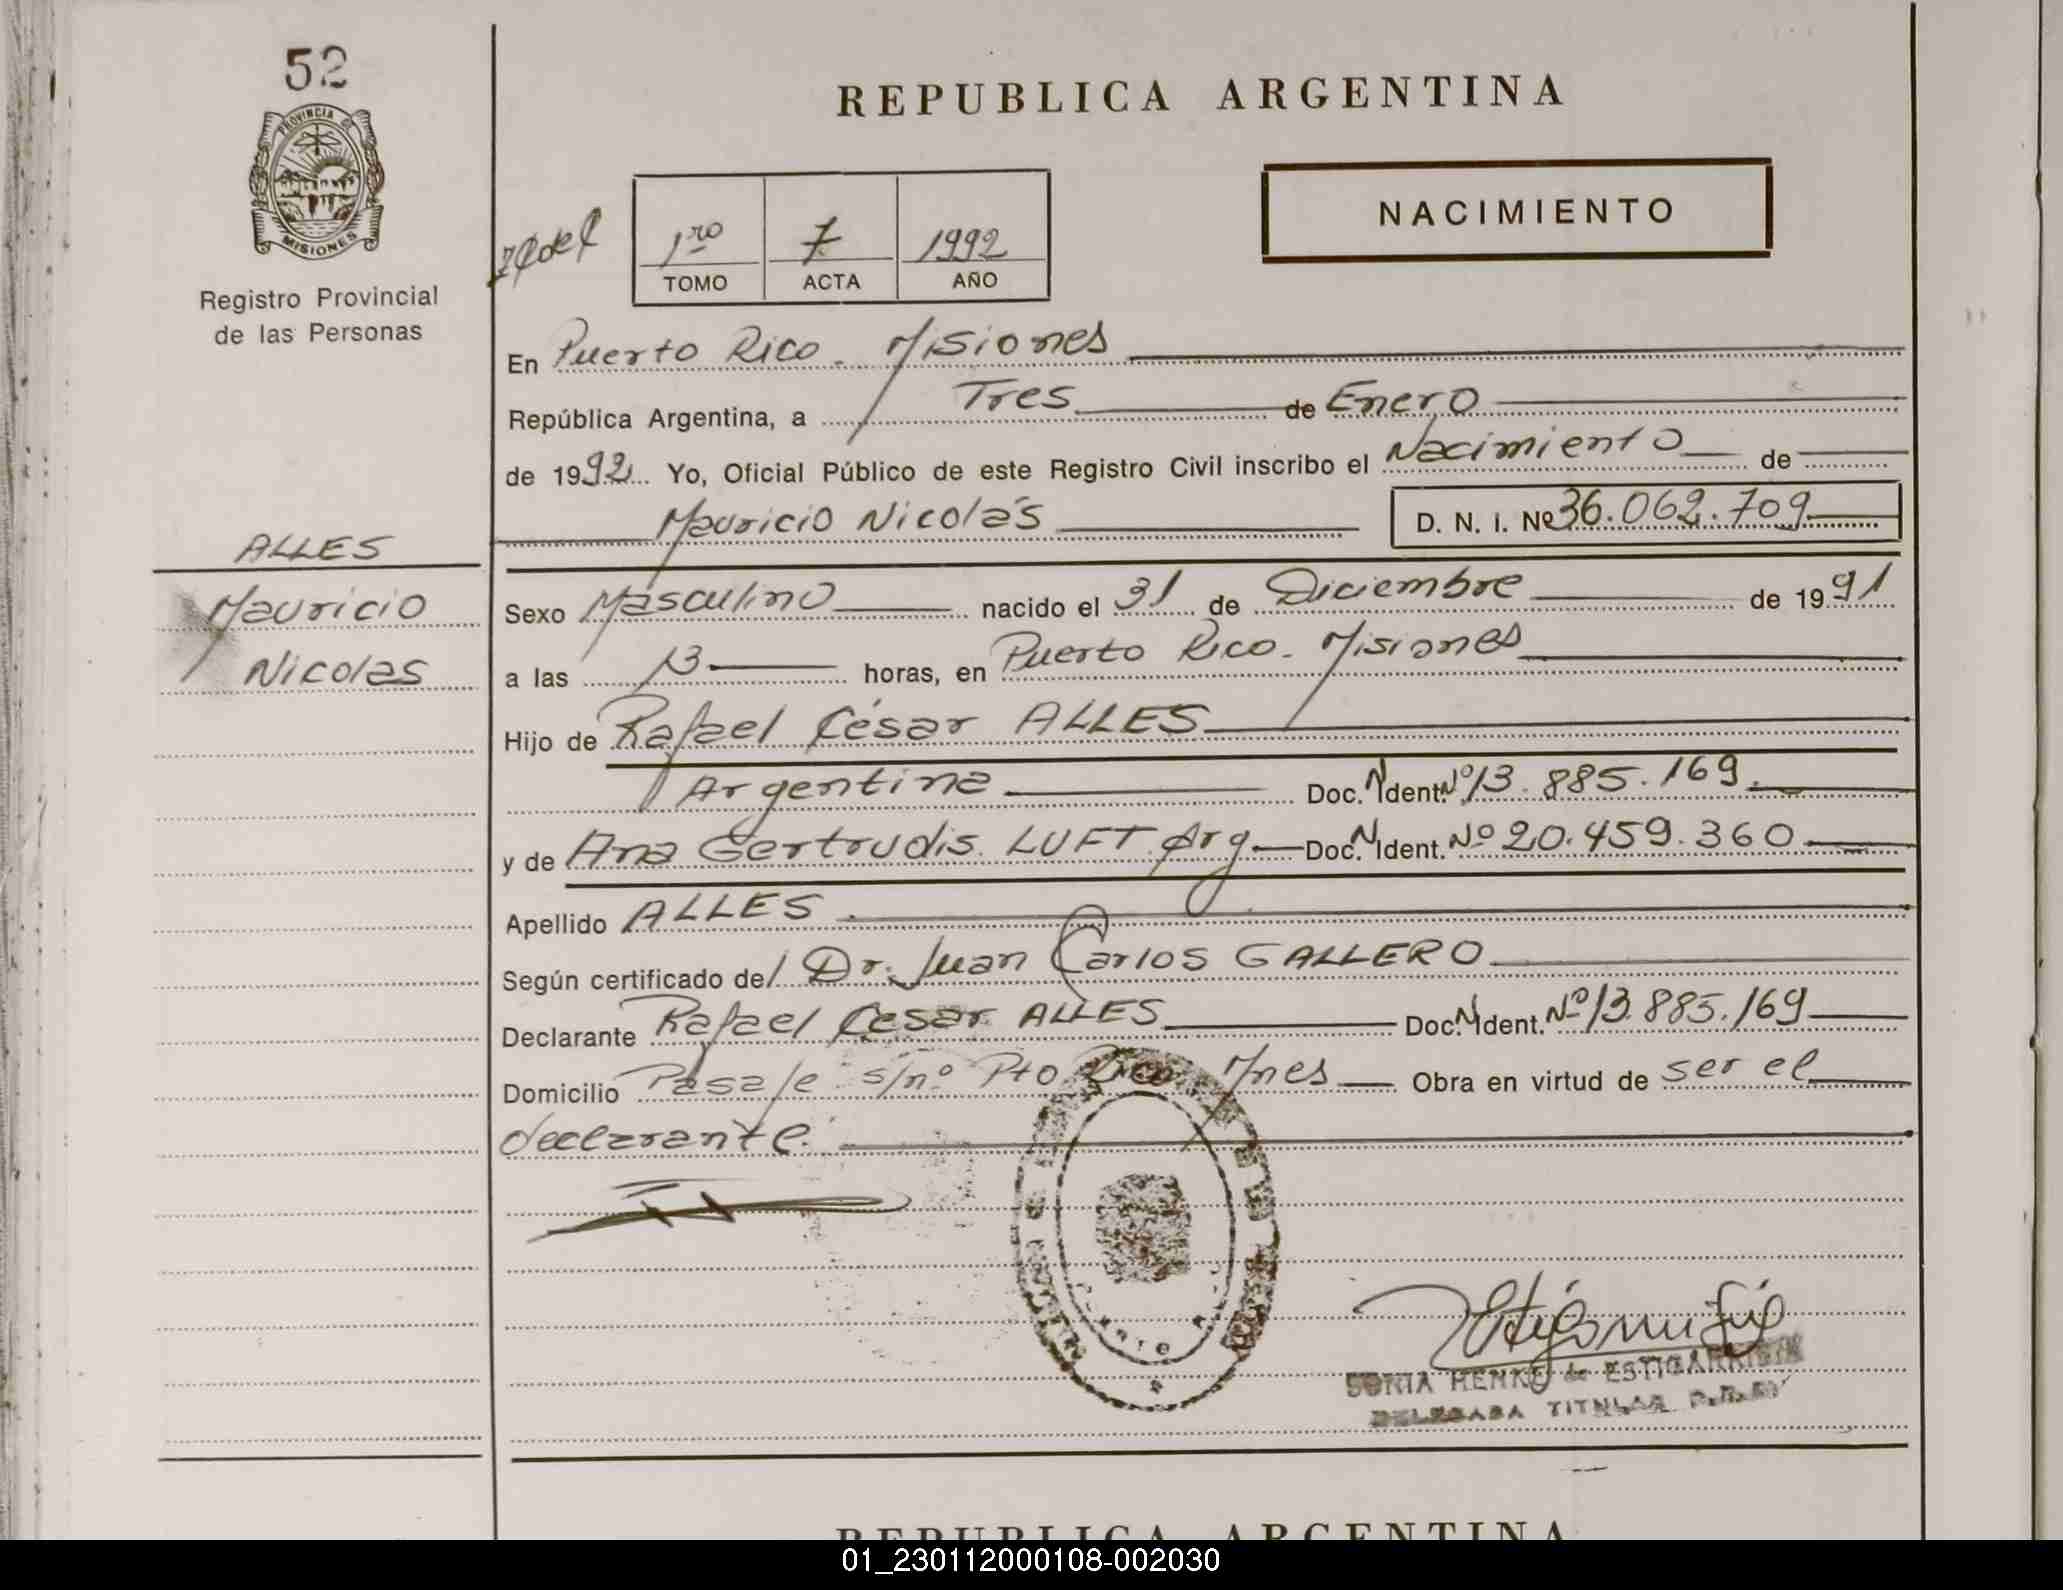 52
PROVINCIA DE
MISIONES
Registro Provincial
de las Personas
REPUBLICA ARGENTINA
NACIMIENTO
1ro 7 1992
TOMO ACTA AÑO
En Puerto Rico - Misiones
República Argentina, a Tres de Enero
de 1992 Yo, Oficial Público de este Registro Civil inscribo el Nacimiento de
Mauricio Nicolás D. N. I. Nº 36.062.709
ALLES
Mauricio
Nicolas
Sexo Masculino nacido el 31 de Diciembre de 1991
a las 13 horas, en Puerto Rico - Misiones
Hijo de Rafael César ALLES
Argentina Doc. N Ident. Nº 13.885.169.
y de Ana Gertrudis LUFT Arg. Doc. N Ident. Nº 20.459.360
Apellido ALLES
Según certificado del Dr. Juan Carlos GALLERO
Declarante Rafael Cesar ALLES Doc. N Ident. Nº 13.885.169
Domicilio Pasaje s/nº Pto Rico Mnes Obra en virtud de ser el
declarante.
SONIA HENKE de ESTIGARRIBIA
DELEGADA TITULAR
REPUBLICA ARGENTINA
01_230112000108-002030